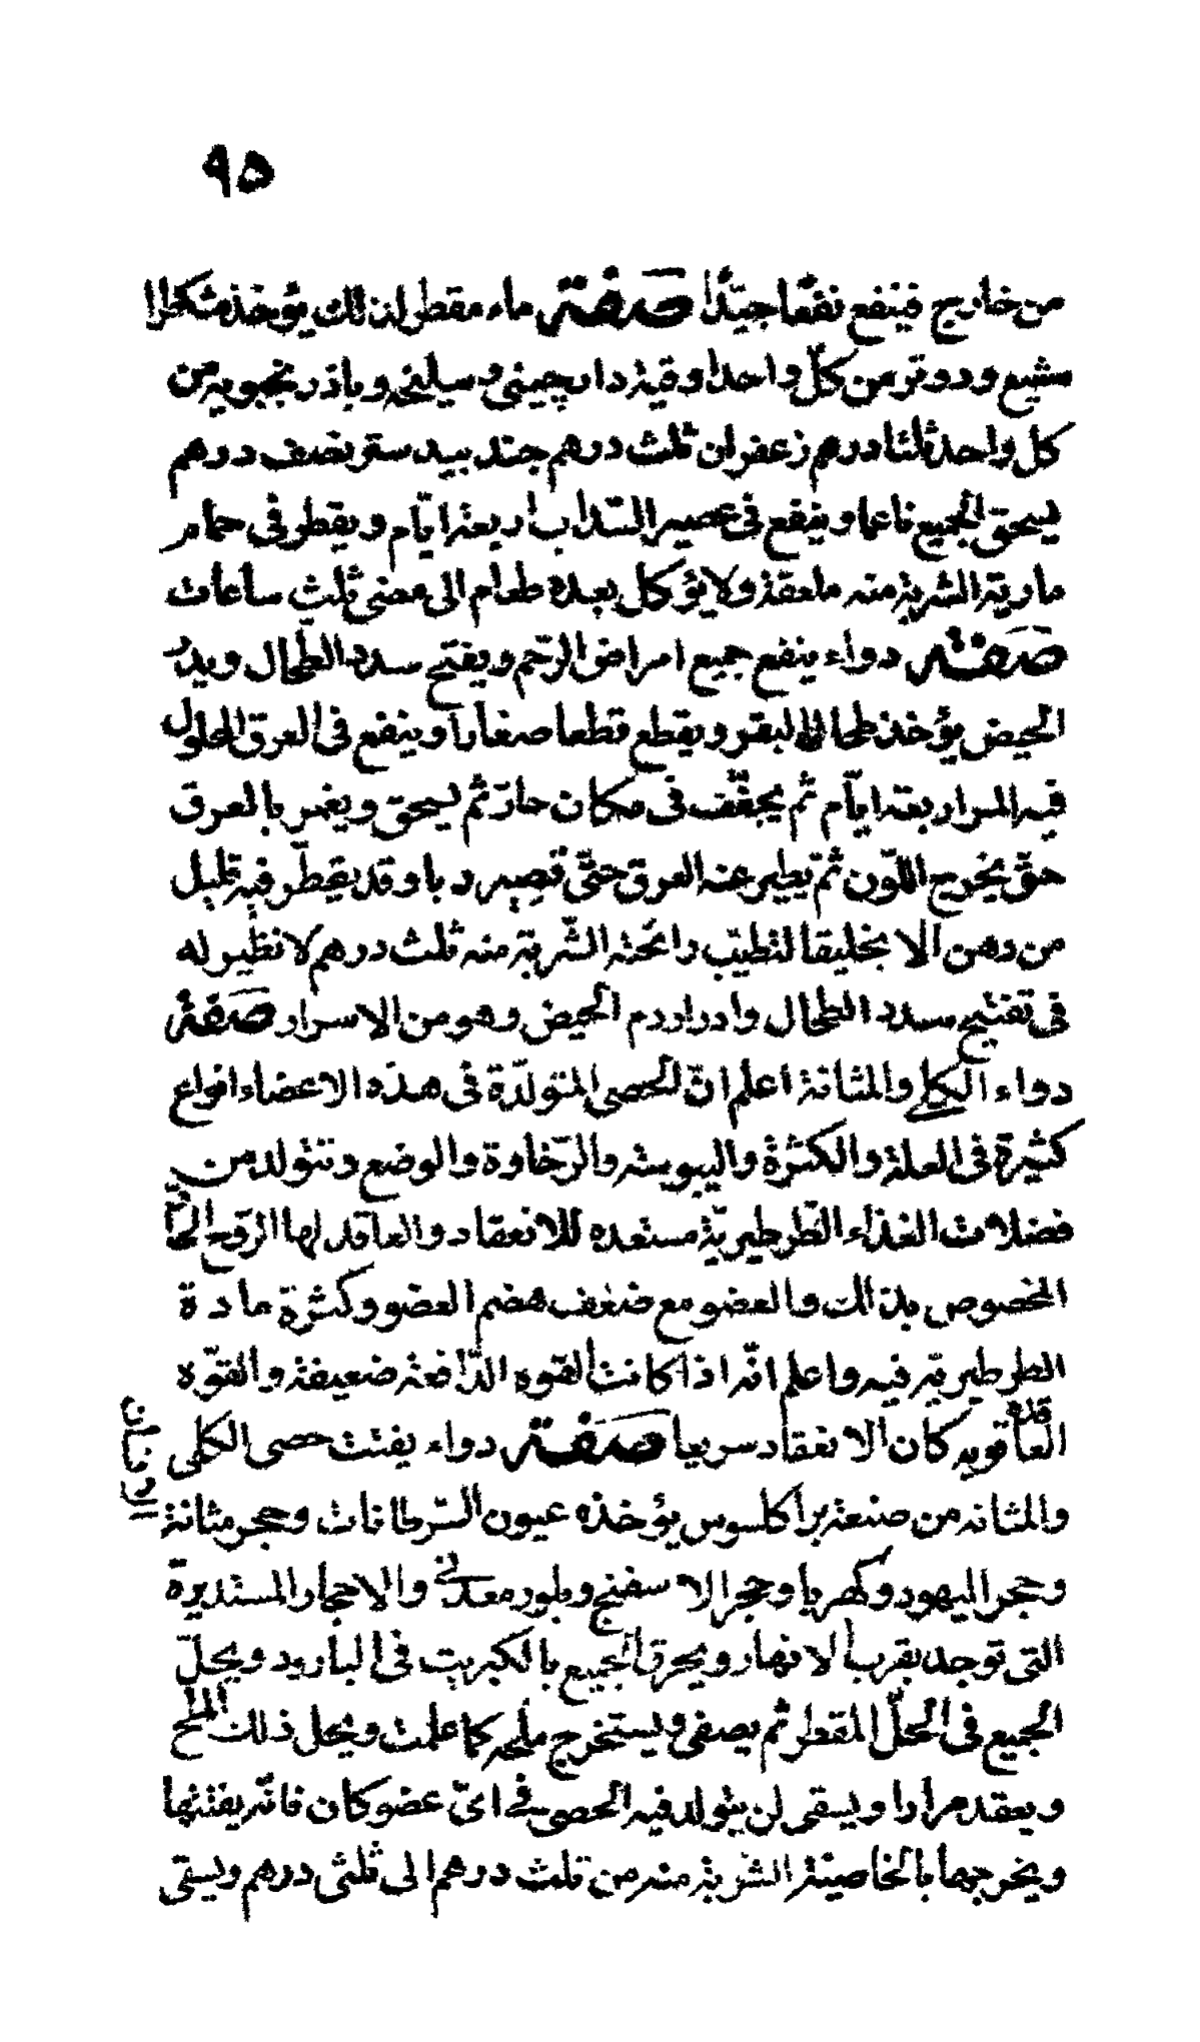 ٩٥
من خارج فينفع نفعًا جيّدًا صفته ماء مقطر لذلك يؤخذ مشكطرا
مشيع ودوقو من كلّ واحد اوقية دارچيني وسيليخه وباذرنجبويه من
كل واحد ثلثا درهم زعفران ثلث درهم جندبيدستر نصف درهم
يسحق الجميع ناعما وينقع فى عصير السّداب اربعة ايّام ويقطر فى حمام
مارية الشربة منه ملعقة ولا يؤكل بعده طعام الى مضى ثلث ساعات
صفته دواء ينفع جميع امراض الرّحم ويفتح سدد الطّحال ويدرّ
الحيض يؤخذ طحال البقر ويقطع قطعا صغارا وينقع فى العرق المحلول
فيه المر اربعة ايّام ثم يجفّف فى مكان حارّ ثم يسحق ويغمر بالعرق
حتّى يخرج اللّون ثمّ يطير عنه العرق حتّى تصير ربا وقد يقطّر فيه قليل
من دهن الانجليقا لتطيّب رائحته الشّربة منه ثلث درهم لا نظير له
فى تفتيح سدد الطحال وادرار دم الحيض وهو من الاسرار صفة
دواء الكلى والمثانة اعلم انّ الحصى المتولّدة فى هذه الاعضاء انواع
كثيرة فى العلة والكثرة واليبوسته والرّخاوة والوضع وتتولد من
فضلات الغذاء الطّرطيريّة مستعده للانعقاد والعاقد لها الرّوح
المخصوص بذالك والعضو مع ضعف هضم العضو وكثرة مادة
الطرطيرية فيه واعلم انّه اذا كانت القوه الدّافعة ضعيفة والقوّه
العاقده قويه كان الانعقاد سريعا صفته دواء يفتت حصى الكلى
والمثانه من صنعة براكلسوس يؤخذ عيون السّرطانات وحجر مثانة
وحجر اليهود وكهربا وحجر الاسفنج وبلور معدنى والاحجار المستديرة
التى توجد بقرب الانهار ويحرق الجميع بالكبريت فى البارود ويحلّ
الجميع فى الخلّ المقطر ثم يصفى ويستخرج ملحه كما علمت ويحل ذلك الملح
ويعقد مرارا ويسقى لمن يتولد فيه الحصى فى اىّ عضو كان فانّه يفتتها
ويخرجها بالخاصيّة الشّربة منه من ثلث درهم الى ثلثى درهم ويسقى